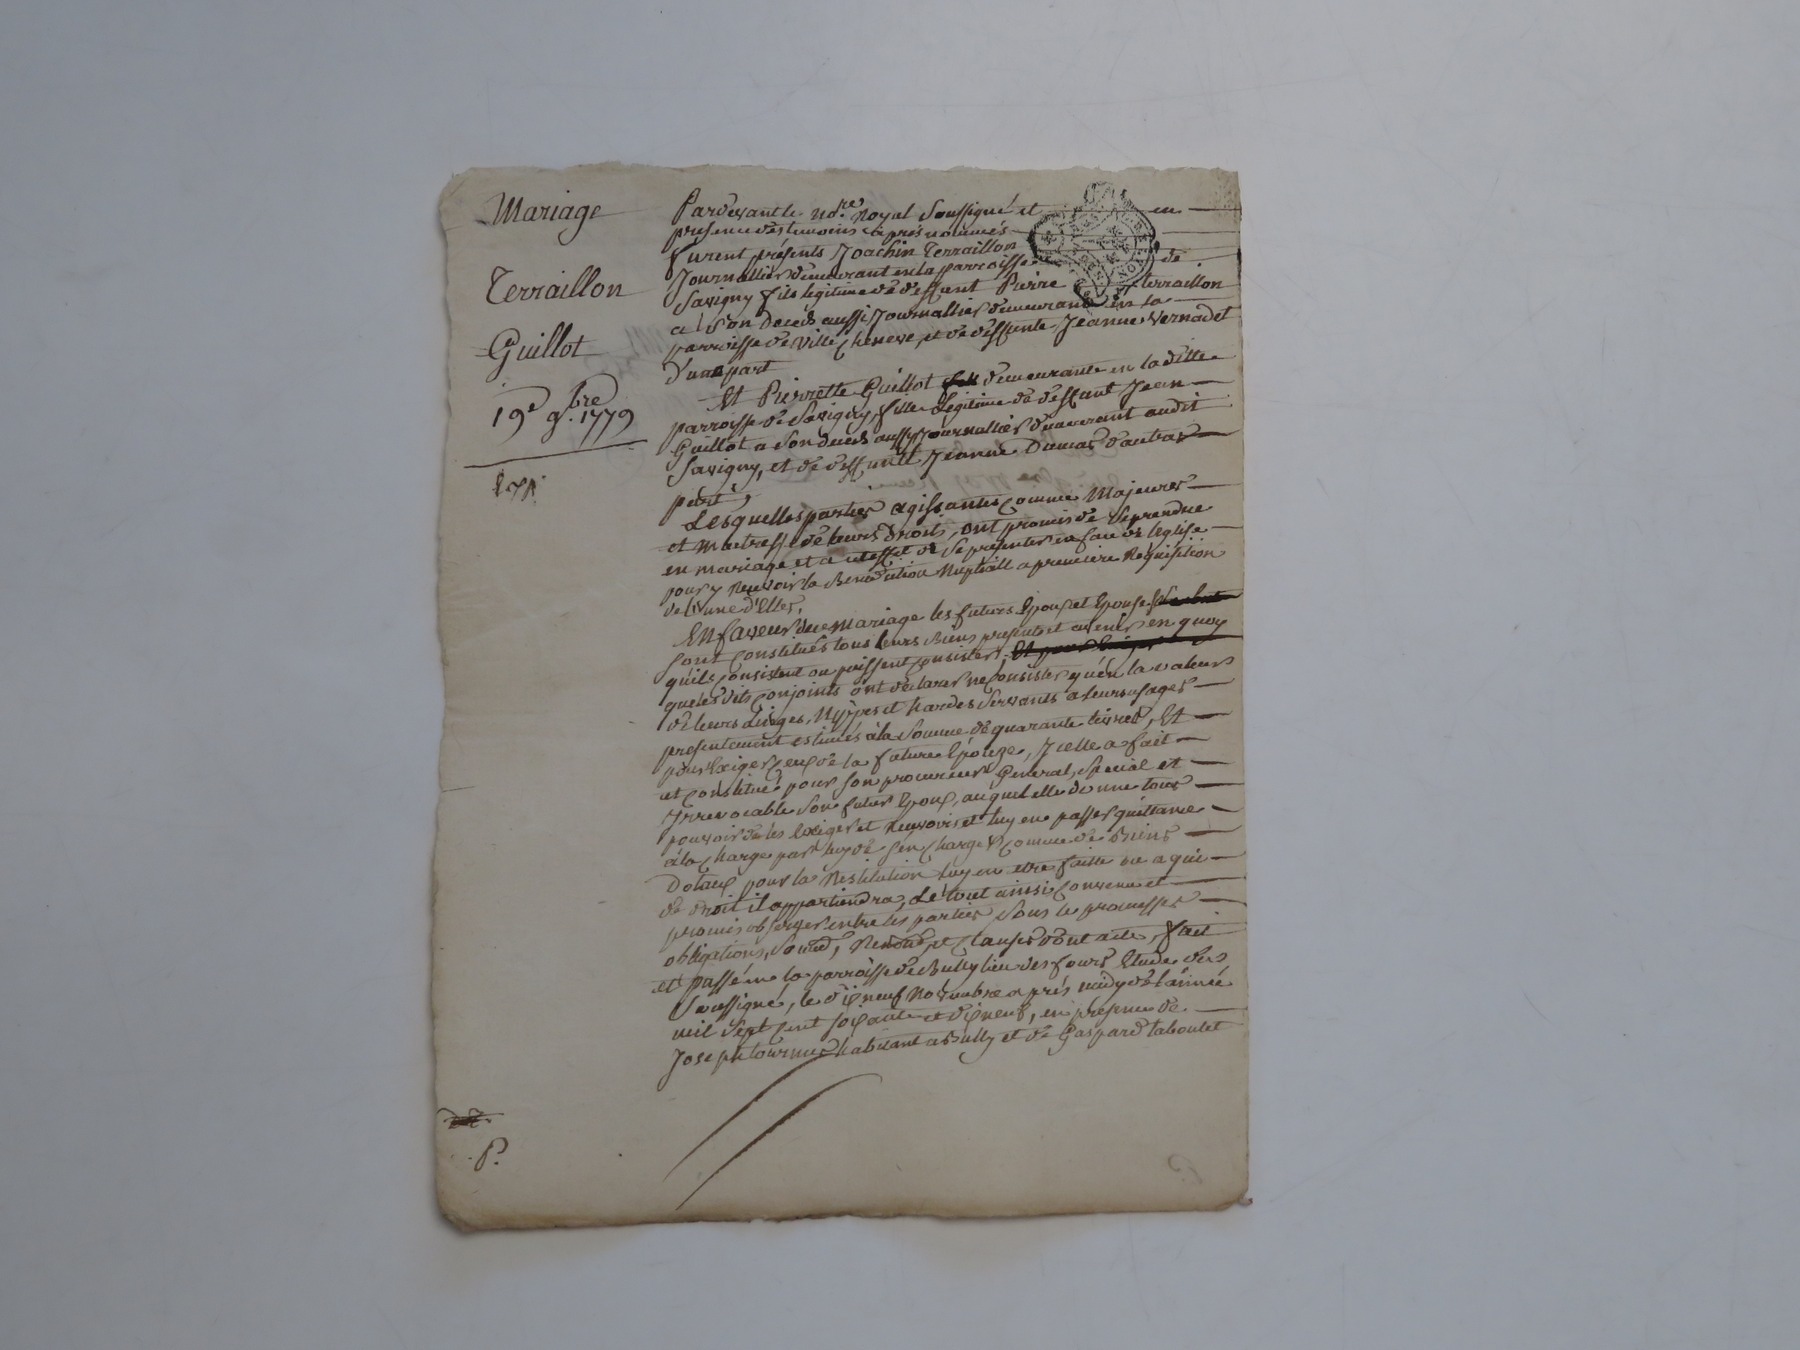 Mariage
Terraillon
Guillot
19e 9bre. 1779
Pardevant le nore. Royal Soussigné et en
presence des temoins après nommés
furent présents Joachin Terraillon
Journallier demeurant en la parroisse de
Savigny fils legitime de deffunt Pierre terraillon
a son deceds aussi Journallier demeurant en la
parroisse de Ville Cheneve, et de deffunte Jeanne Vernadet
d'une part
Et Pierrette Guillot demeurante en la ditte
parroisse de Savigny, fille Legitime de deffunt Jean
Guillot a son deceds aussy Journallier demeurant audit
Savigny, et de deffunte Jeanne Dumas d'autre
part,
Lesquelles parties agissantes comme Majeures
et maitresse de leurs droits, ont promis de Se prendre
en mariage et a cet effet de Se presenter en face de l'eglise
pour y recevoir la Benediction Nuptiall a premiere Requisition
de l'une d'Elles,
En faveur de ce mariage les futurs Epoux et Epouse
Sont Constitués tous leurs Biens presents et avenir en quoy
qu'ils Consistent ou puissent Consister,
que lesdits Conjoints ont déclarés ne Consister qu'en la valeur
de leurs Linges, Nippes et hardes Servants a leurs usages
presentement estimés à la Somme de quarante livres, Et
pour Exiger Ceux de la future Epouze, Icelle a fait
et Constitué pour Son procureur General, Special et
Irrevocable Son futur Epoux, auquel elle donne tous
pouvoir de les Exiger et Recevoir et luy en passer quittance
à la Charge par luy de S'en Charger Comme de Biens
Dotaux pour la Restitution luy en etre faitte ou a qui
de droit il appartiendra, Le tout ainsi Convenu et
promis observer entre les parties Sous les promesses
obligations, Soumd, Renond, et Clauses dont acte, fait
et passé en la parroisse de Bully lieu des fours Etude dus
Soussigné, le dix neuf Novembre après midy de l'année
mil Sept Cent Soixante et dix neuf, en presence de
Joseph tournus habitant a Bully et de Gaspard taboulet
P.